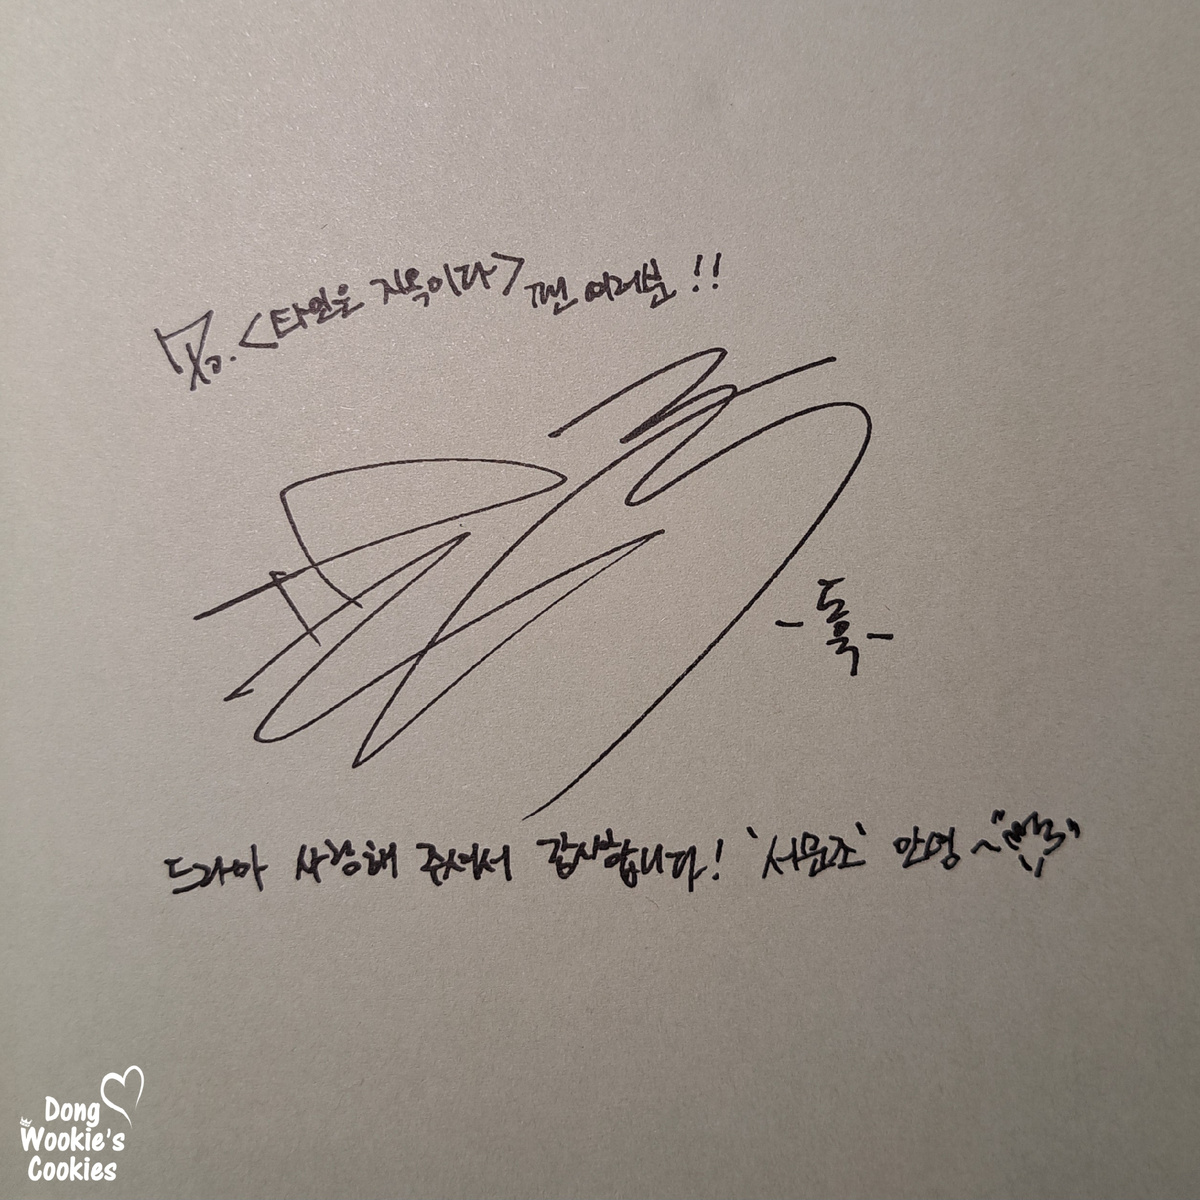 To. <타인은 지옥이다> 팬 여러분!!
-동욱-
드라마 사랑해 주셔서 감사합니다! '서문조' 안녕~
Dong
Wookie's
Cookies